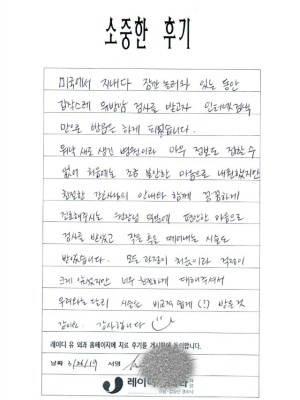 소중한 후기
미국에서 지내다 잠깐 놀러와 있는 동안
갑작스레 유방암 검사를 받고자 인터넷 검색
만으로 방문을 하게 되었습니다.
워낙 새로 생긴 병원이라 아무 정보도 접할 수
없어 처음에는 조금 불안한 마음으로 내원했지만
친절한 간호사님의 안내와 함께 꼼꼼하게
진료해주시는 원장님 덕분에 편안한 마음으로
검사를 받았고 작은 혹을 떼어내는 시술도
받았습니다. 모든 과정이 처음이라 걱정이
크게 있었지만 너무 친절하게 대해주셔서
우려와는 달리 시술도 비교적 쉽게 (!) 받은 것
같아요. 감사합니다
레이디 유 외과 홈페이지에 치료 후기를 게시함에 동의합니다.
날짜 서명
레이디